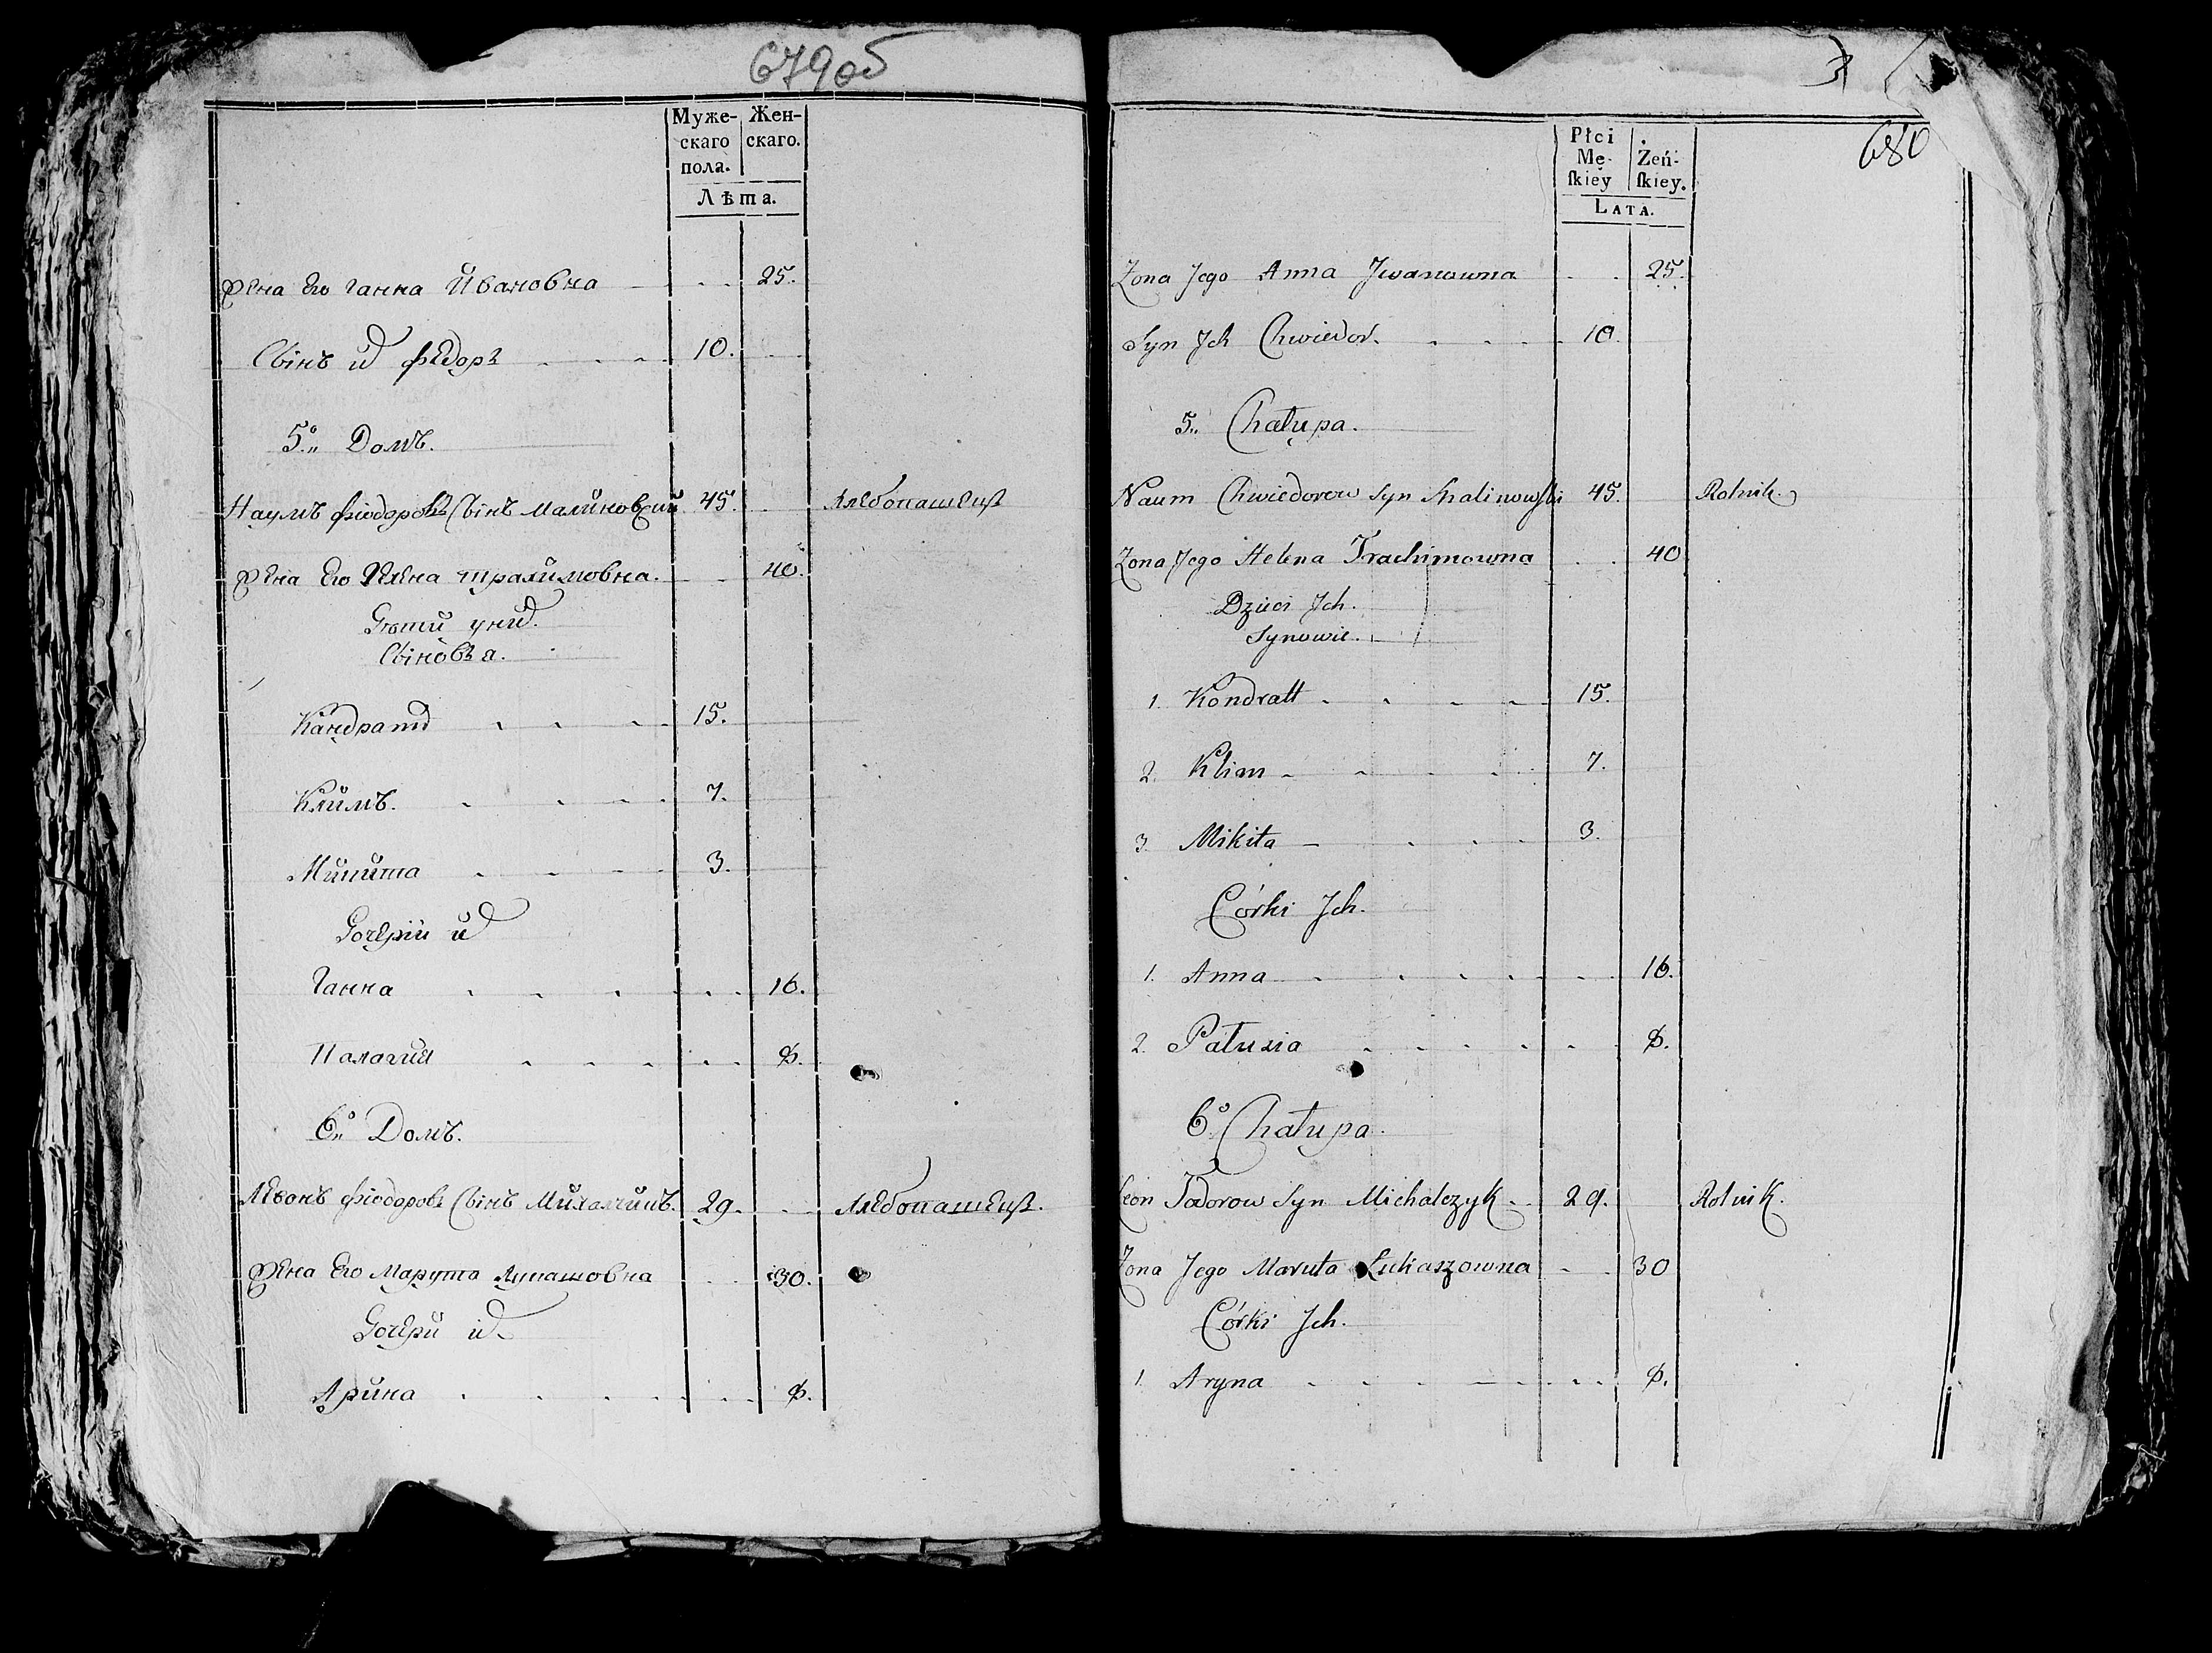 679об
Муже- Жен-
скаго скаго.
пола.
Лѣта.
Жена Его Ганна Ивановна 25.
Сынъ ихъ Фёдоръ 10.
5º Домъ.
Наумъ Фіодоровъ Сынъ Малиновский 45. Хлебопашецъ
Жена Его Елена Трахимовна. 40.
Дѣти у них.
Сыновья.
Кандратъ 15.
Климъ. 7.
Микита 3.
Дочерии их
Ганна 16.
Палагия 8.
6º Домъ.
Левонъ Фіодоровъ Сынъ Михалчикъ. 29. Хлебопашецъ.
Жена Его Марута Лукашовна 30.
Дочери их
Арина 8.
680
Płci
Mę- Żeń-
ſkiey ſkiey.
LATA.
Zona Jego Anna Jwanowna 25.
Syn Jch Chwiedor. 10.
5. Chałupa.
Naum Chwiedorow Syn Malinowſki 45. Rolnik.
Zona Jego Helena Trachimowna 40
Dzieci Jch.
Synowie.
1. Kondratt 15.
2. Klim 7.
3. Mikita 3.
Córki Jch.
1. Anna 16.
2. Pałusia 8.
6º Chałupa.
Leon Todorow Syn Michalczyk 29. Rolnik.
Zona Jego Maruta Łukaszowna 30
Córki Jch.
1. Aryna 8.